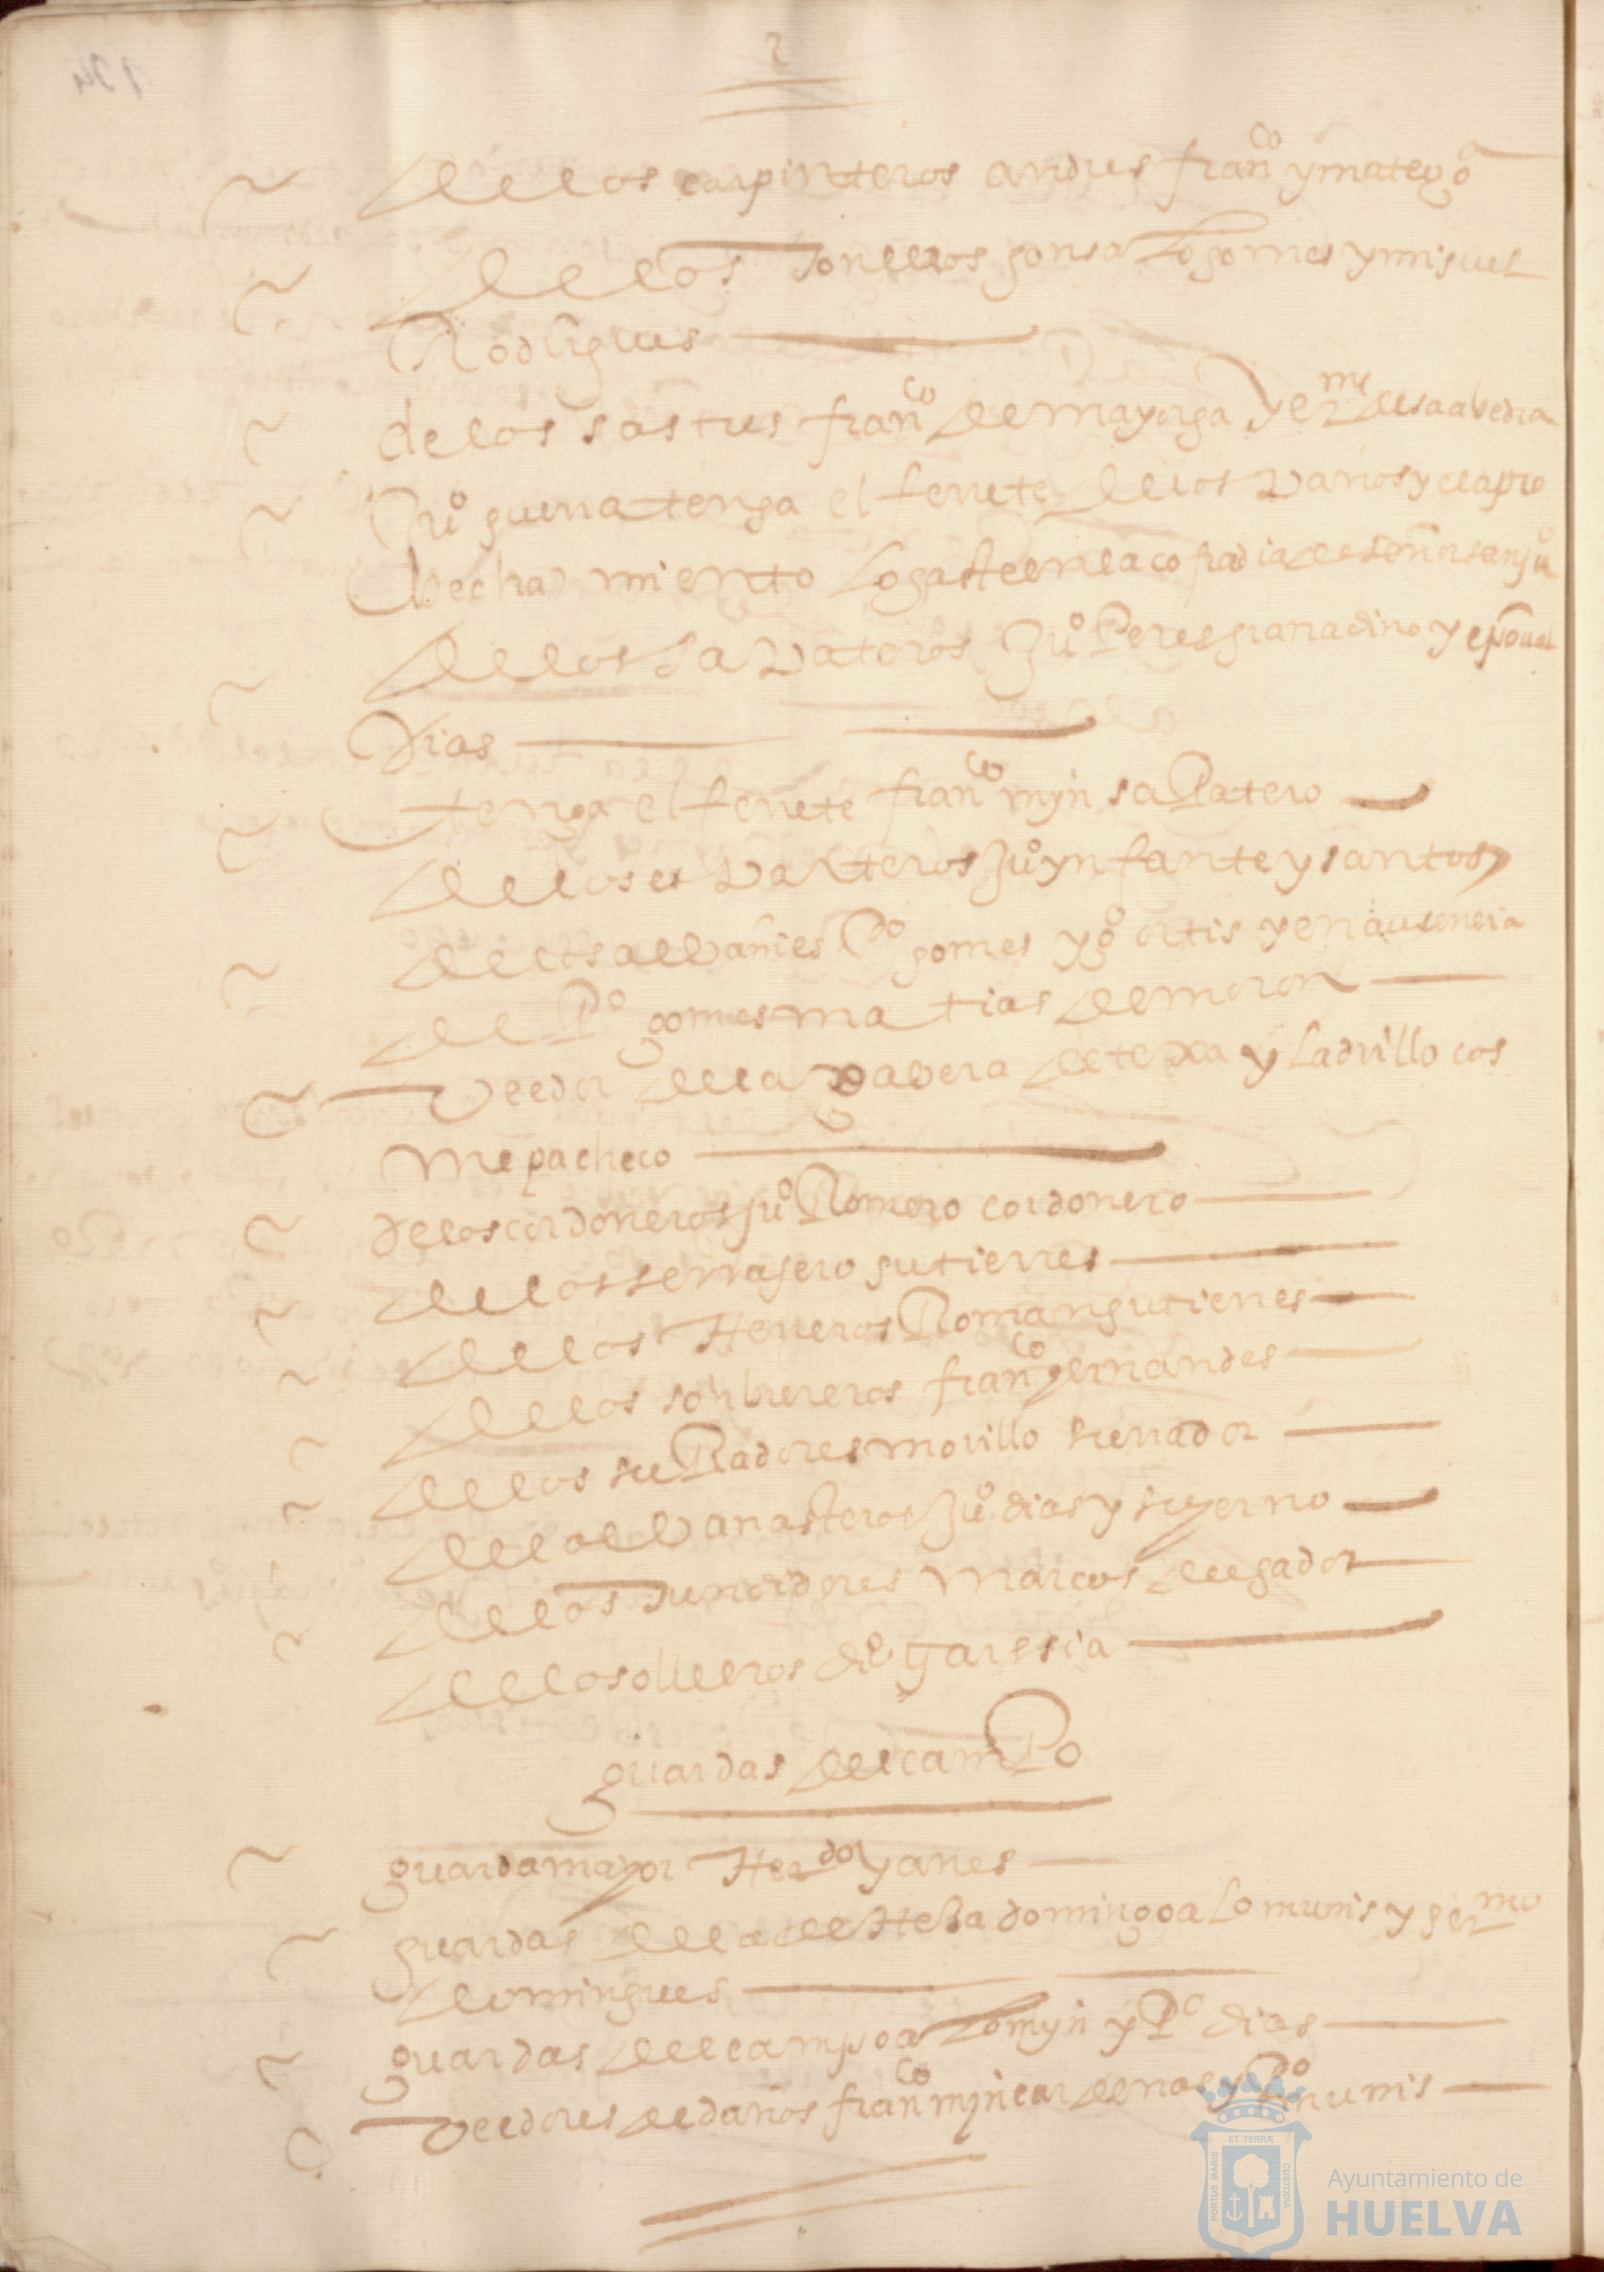 2
de los carpinteros andres fran^co y mateo g^a
de los toneleros gonsalo gomes y miguel
Rodrigues
de los sastres fran^co de mayorga y er^me de saabedra
Ju^o guerra tenga el ferrete de los vaños y el apro
bechamiento lo gaste en la cofradia de señor san ju^o
de los sapateros Ju^o Peres granadino y
Dias
tenga el ferrete fran^co mrn saPatero
de los esparteros Ju^o ynfante y santos
de los albañies P^o gomes y g^o ortis y en ausencia
de P^o gomes matias de moron
veedor de la gavera de texa y ladrillo cos
me pacheco
de los cordoneros ju^o Romero cordonero
de los serrajero gutierres
de los Herreros Roman gutierres
de los sonbreros fran^co gernandes
de los suRadores morillo surrador
de los canasteros Ju^o dias y su yerno
de los tundidores marcos delgado
de los olleros di^o garssia
guardas del camPo
guarda mayor Her^do yanes
guardas de la deHesa domingo alo munis y ger^mo
domingues
guardas del campo alo mrn y P^o dias
veedores de daños fran^co mrn cardenas y P^o nunis
PORTUS MARIS ET TERRÆ CUSTODIA
Ayuntamiento de
HUELVA